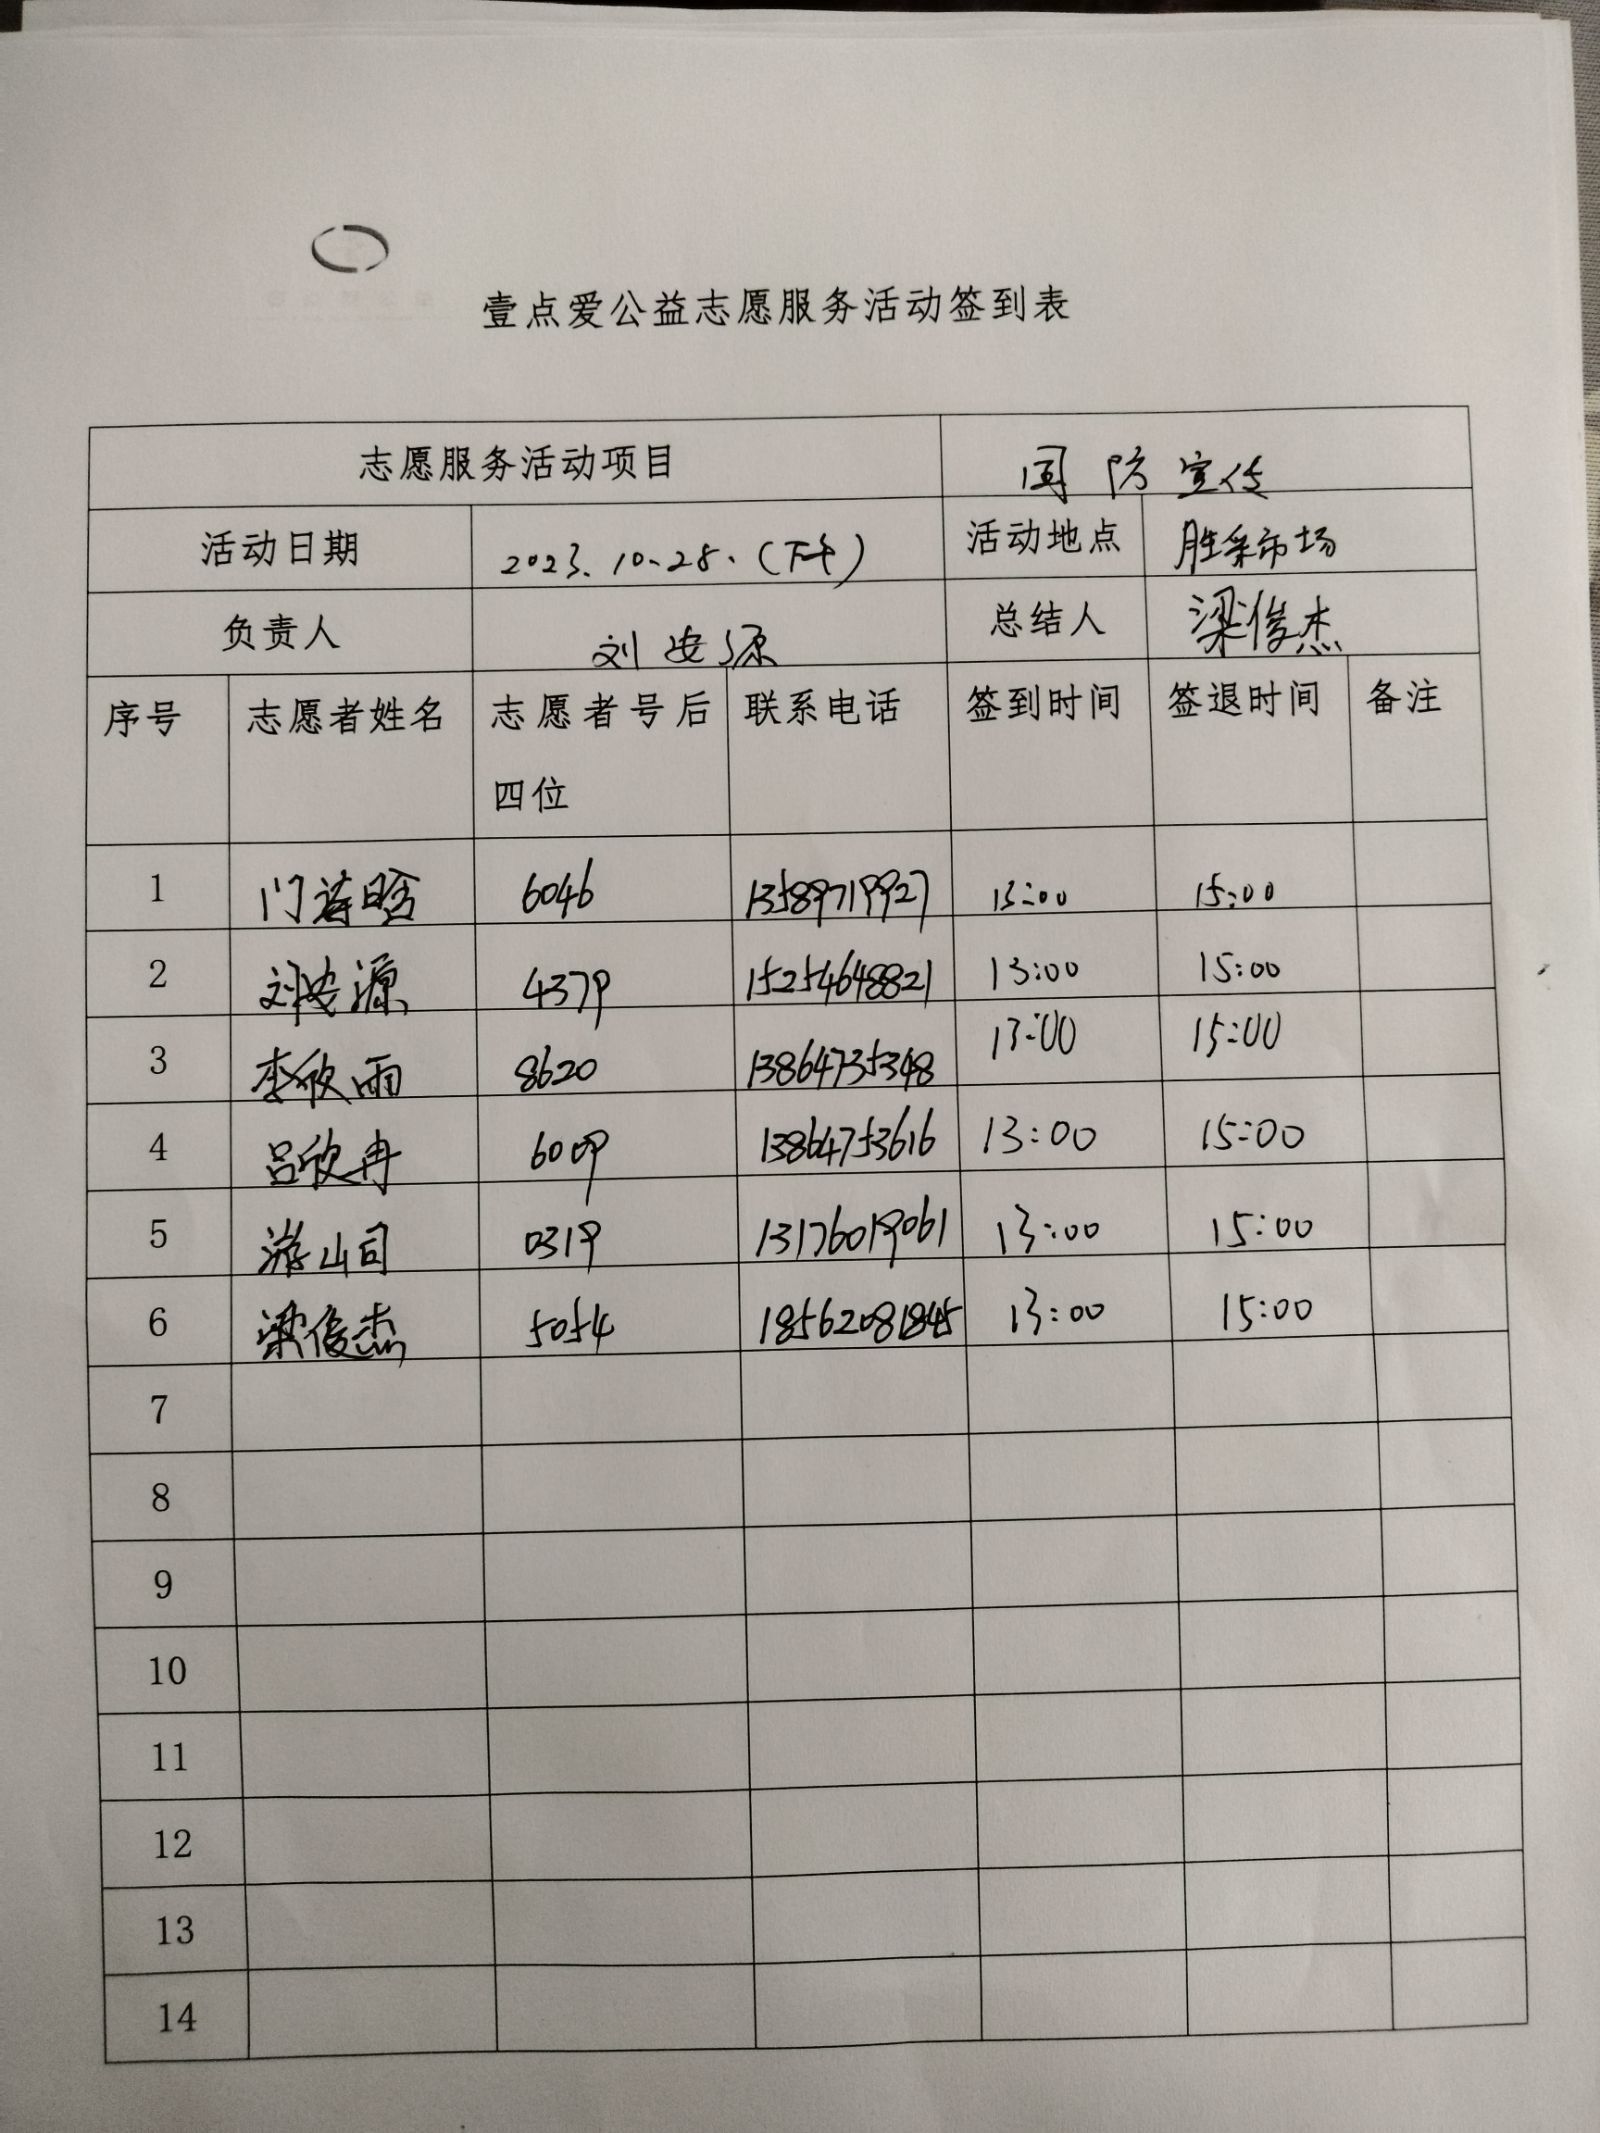 壹点爱公益志愿服务活动签到表
志愿服务活动项目 国防宣传
活动日期 2023.10.28.(下午) 活动地点 胜采市场
负责人 刘安源 总结人 梁俊杰
序号 志愿者姓名 志愿者号后 联系电话 签到时间 签退时间 备注
四位
1 门诗晗 6046 13589719927 13:00 15:00
2 刘安源 4379 15254648821 13:00 15:00
3 李欣雨 8620 13864735348 13:00 15:00
4 吕欣冉 6009 13864753616 13:00 15:00
5 游山司 0319 13176019061 13:00 15:00
6 梁俊杰 5054 18562081845 13:00 15:00
7
8
9
10
11
12
13
14